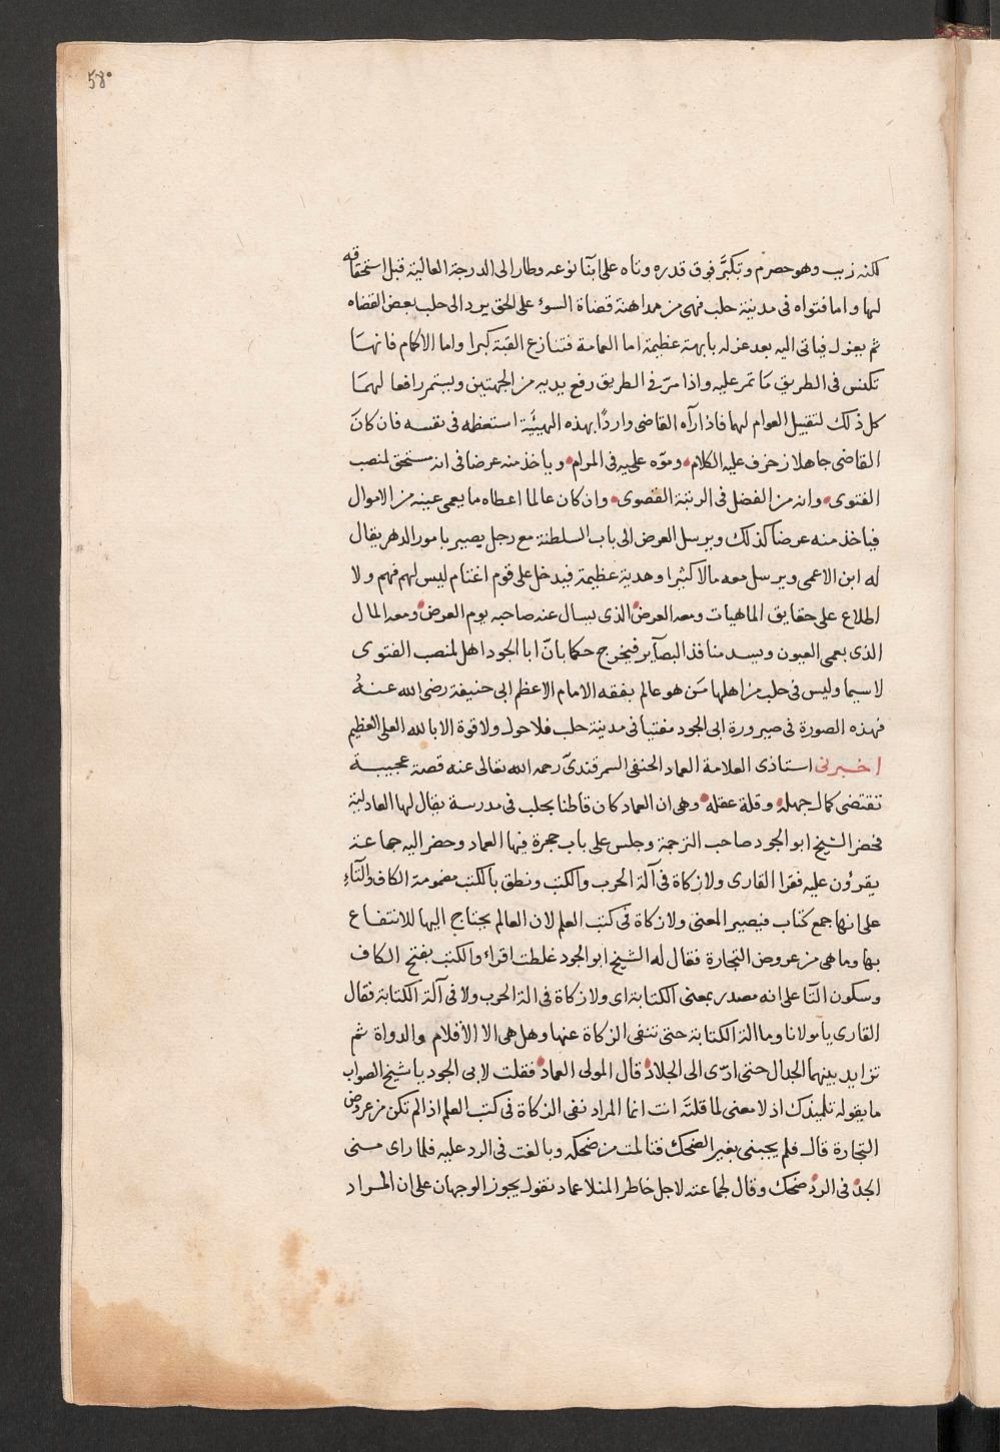 58°
لكنه زبب وهو حصرم وتكبَّر فوق قدره وتاه على ابنآ نوعه وطار الى الدرجة العالية قبل استحقاقه
لها واما فتواه فى مدينة حلب فهى من مداهنة قضاة السوء على الحق يرد الى حلب بعض القضاه
ثم يعزل فياتى اليه بعد عزله بابهة عظيمة اما العمامة فتنازع القبة كبرا واما الاكمام فانهتا
تكنس فى الطريق مَا تمر عليه واذا مرّ فى الطريق رفع يديه من الجهتين ويستمر رافعا لهما
كل ذلك لتقبيل العوام لهما فاذا رآه القاضى واردًا بهذه الهيئَة استعظمه فى نفسه فان كانَ
القاضى جاهلا زخرف عليه الكلام وموّه عليه فى المرام وياخذ منه عرضا فى انه مستحق لمنصب
الفتوى وانه من الفضل فى الرتبة القصوى وان كان عالما اعطاه ما يعمى عينه من الاموال
فياخذ منه عرضا كذلك ويرسل العرض الى باب السلطنة مع رجل بصير بامور الدهر يقال
له ابن الاعمى ويرسل معه مالا كثيرا وهدية عظيمة فيدخل على قوم اغتام ليس لهم فهم ولا
اطلاع على حقايق الماهيات ومعه العرض الذى يسال عنه صاحبه يوم العرض ومعه المال
الذى يعمى العيون ويسد منافذ البصآير فيخرج حكما بانّ ابا الجود اهل لمنصب الفتوى
لا سيما وليس فى حلب من اهلها مَن هو عالم بفقه الامام الاعظم ابى حنيفة رضى الله عنهُ
فهذه الصورة فى صيرورة ابى الجود مفتيا فى مدينة حلب فلا حول ولا قوة الا بالله العلى العظيم
اخبرنى استاذى العلامة العماد الحنفى السمرقندىّ رحمه الله تعالى عنه قصة عجيبة
تقتضى كمال جهله وقلة عقله وهى ان العماد كان قاطنا بحلب فى مدرسة يقال لها العادلية
فحضر الشيخ ابو الجود صاحب الترجمة وجلس على باب حجرة فيها العماد وحضر اليه جماعة
يقرؤن عليه فقرا القارى ولا زكاة فى آلة الحرب والكتب ونطق بالكتب مضمومة الكاف والتَّاءِ
على انها جمع كتاب فيصير المعنى ولا زكاة فى كتب العلم لان العالم يحتاج اليها للانتفاع
بها وما هى من عروض التجارة فقال له الشيخ ابو الجود غلطت اقراء والكتب بفتح الكاف
وسكون التا على انه مصدر بمعنى الكتابة اى ولا زكاة فى الة الحرب ولا فى آلة الكتابة فقال
القارى يا مولانا وما الة الكتابة حتى تنفى الزكاة عنها وهل هى الا الأقلام والدواة ثم
تزايد بينهما الجدال حتى ادّى الى الجلاد قال المولى العماد فقلت لابى الجود يا شيخ الصواب
ما يقوله تلميذك اذ لا معنى لما قلتَه انت انما المراد نفى الزكاة فى كتب العلم اذا لم تكن من عروض
التجارة قال فلم يجبنى بغير الضحك فتالمت من ضحكه وبالغت فى الرد عليه فلما راى منى
الجدّ فى الردّ ضحك وقال لجماعته لاجل خاطر المنلا عماد نقول يجوز الوجهان على ان المراد